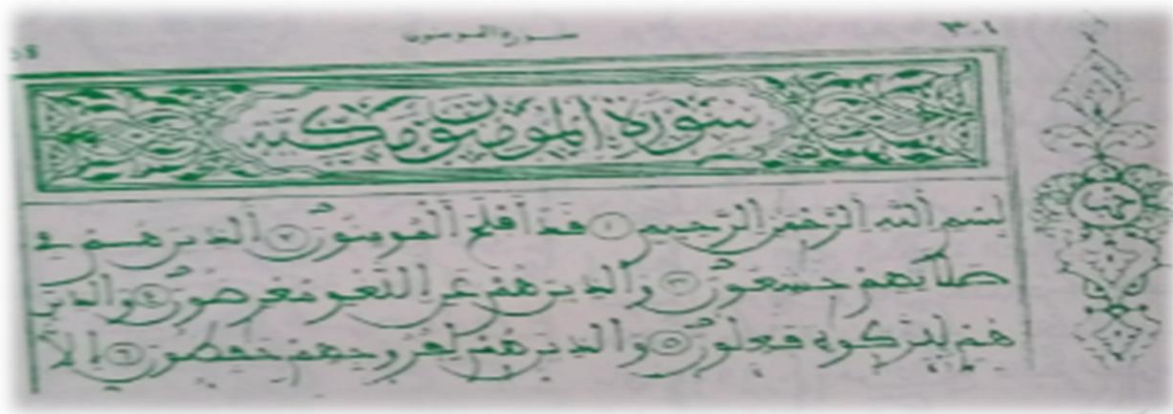 سورة المومنون
٣٠١
سورة المومنون مكية
بسم الله الرحمن الرحيم ١ قد افلح المومنون ٢ الذين هم في
صلاتهم خشعون ٣ والذين هم عن اللغو معرضون ٤ والذين
هم للزكوة فعلون ٥ والذين هم لفروجهم حفظون ٦ الا
حزب